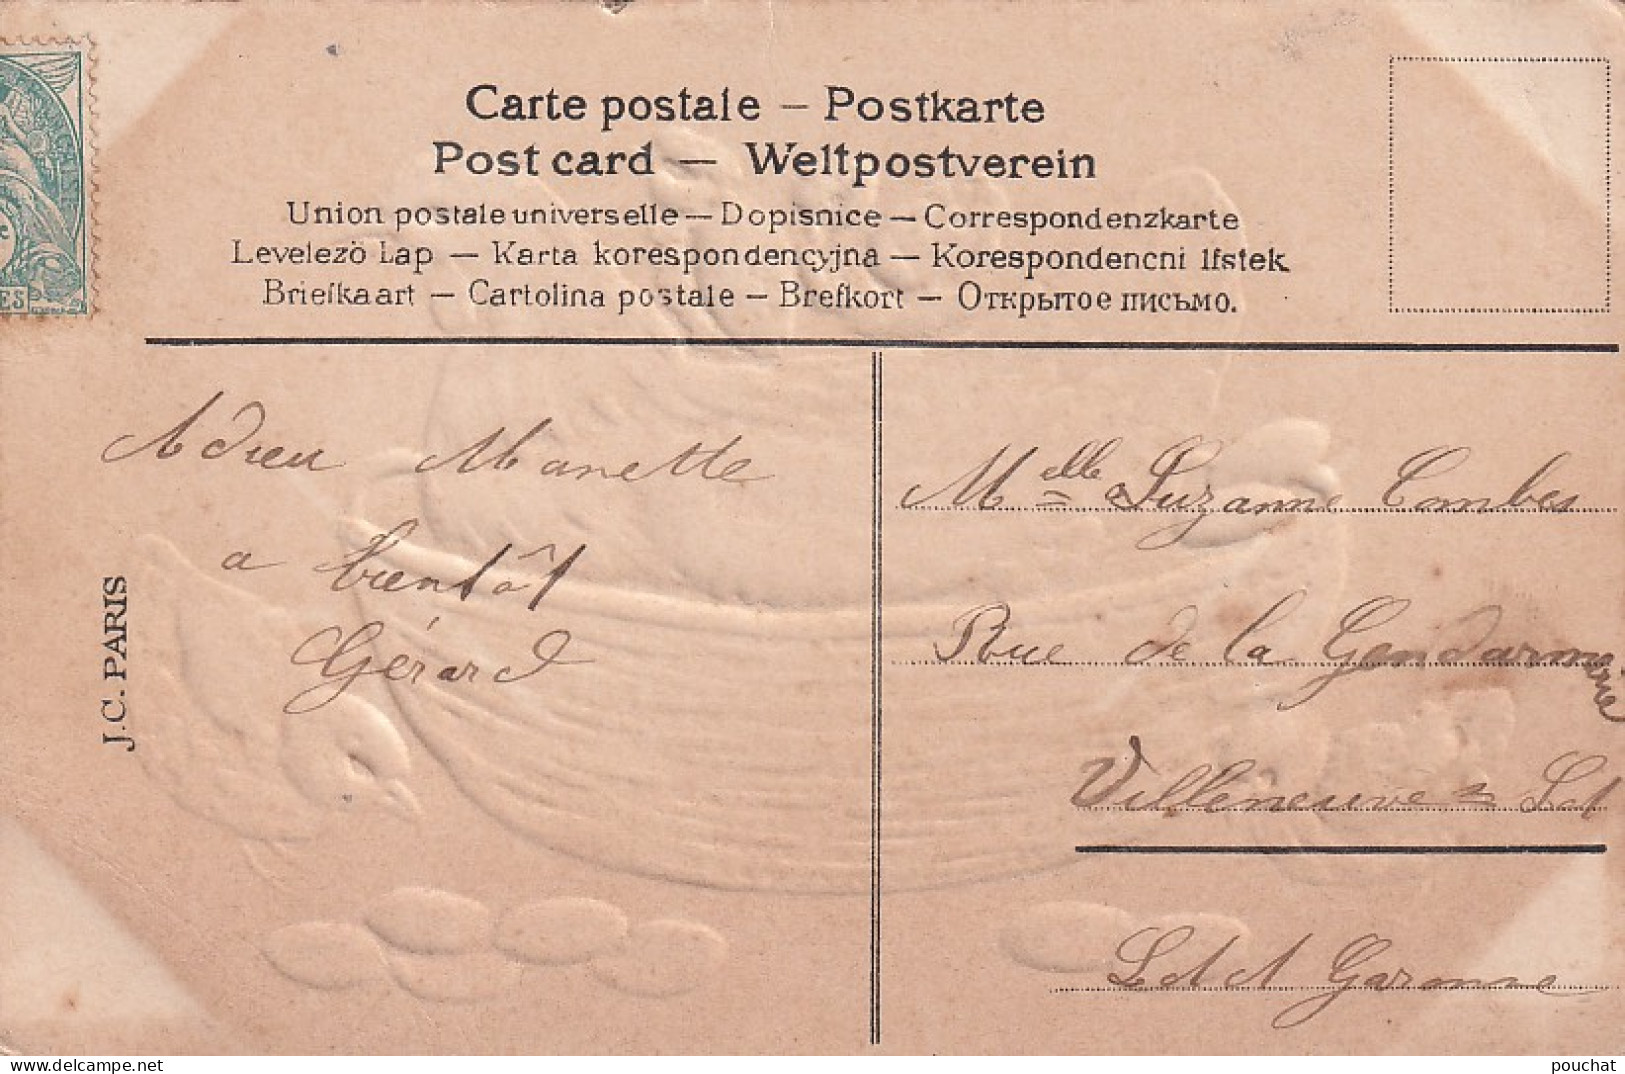 Carte postale – Postkarte
Post card — Weltpostverein
Union postale universelle — Dopisnice — Correspondenzkarte
Levelezö Lap — Karta korespondencyjna — Korespondencni lfstek
Briefkaart — Cartolina postale — Brefkort — Открытое письмо.
Adieu Manette
a bientôt
Gérard
J.C. PARIS
Melle Suzanne Combes
Rue de la Gendarmerie
Villeneuve s Lot
Lot et Garonne
ES
pouchat